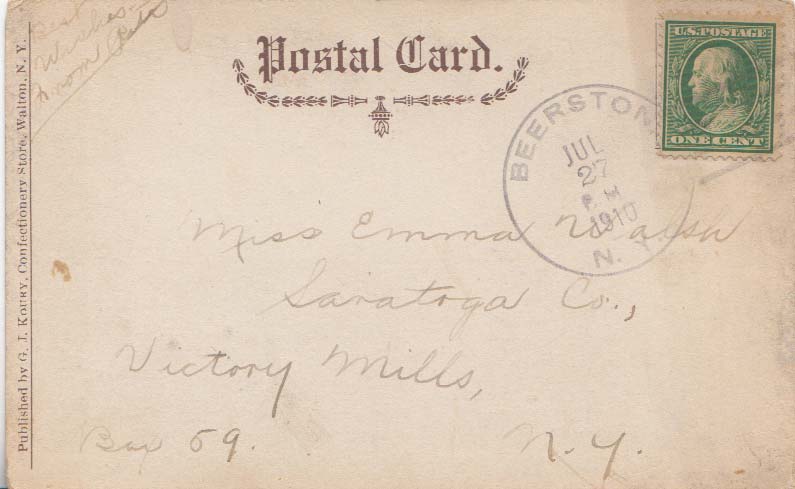 Best
Wishes
From
Postal Card.
U.S. POSTAGE
ONE CENT
BEERSTON
JUL
27
P.M
1910
N.
Miss Emma
Saratoga Co.,
Victory Mills,
Box 59.
N.Y.
Published by G. J. Koury, Confectionery Store, Walton, N. Y.